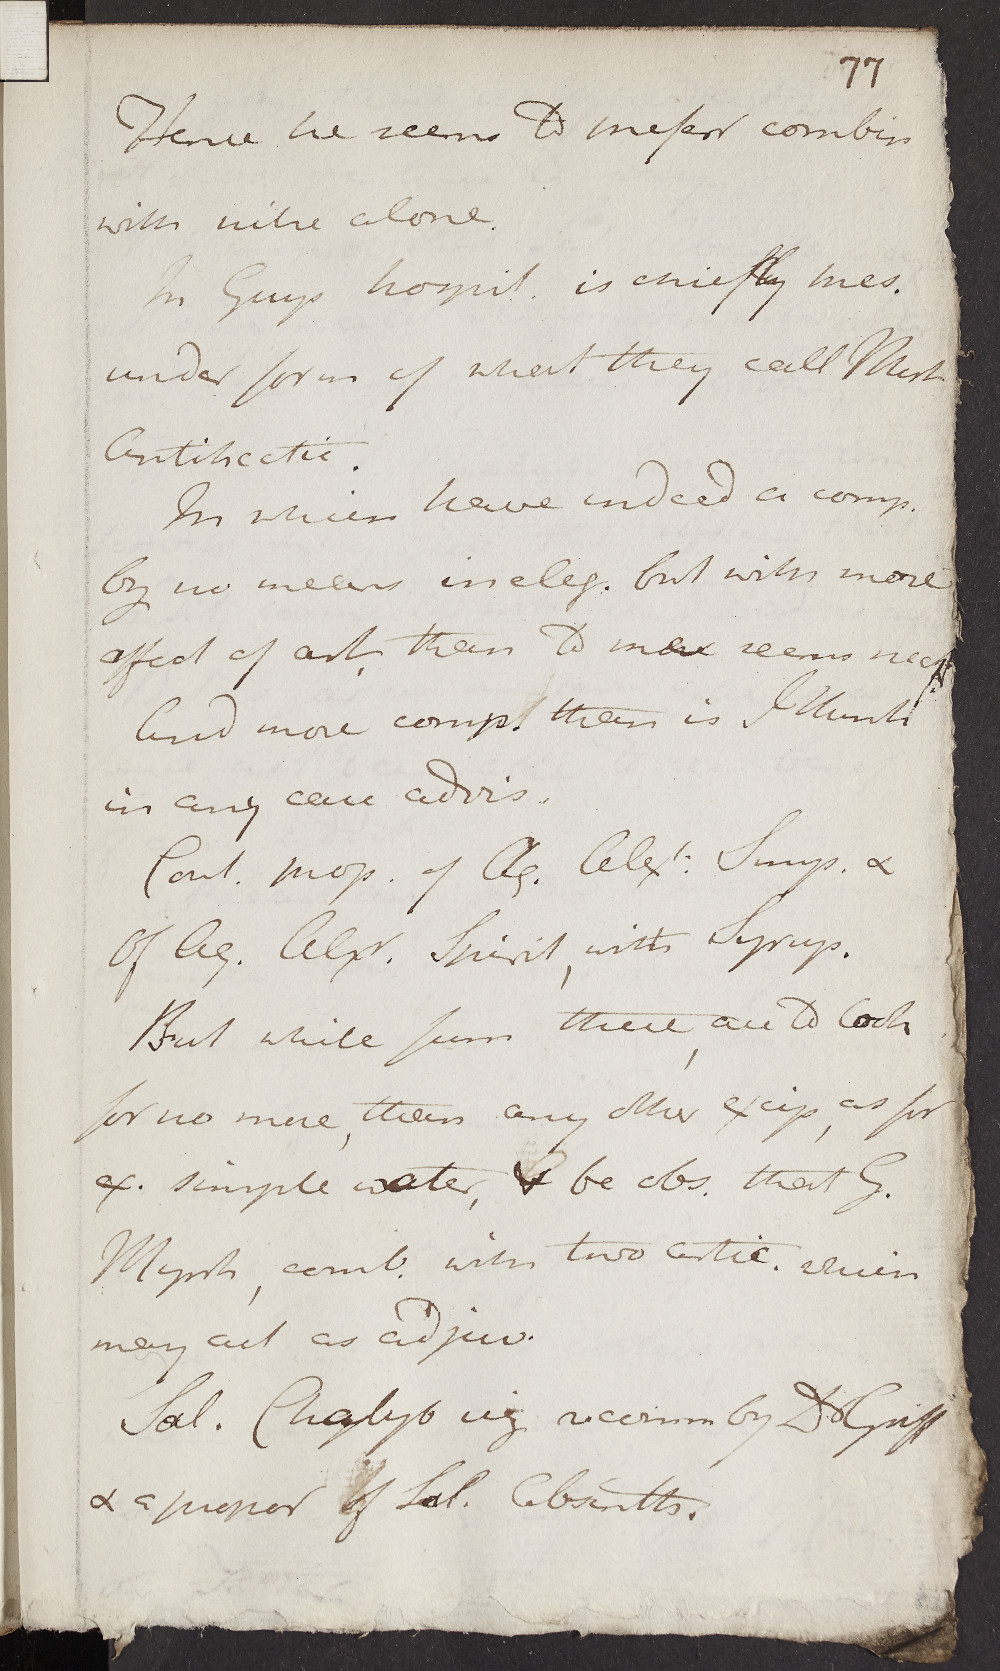 77
Hence he seems to prefer combin
with nitre alone.
In Guys hospit. is chiefly pres.
under form of what they call Mist
Antihectic.
In which have indeed a comp.
by no means ineleg. but with more
affect of art, than to me seems necess
And more comp. than is I think
in any case advis.
Cont. prop. of Aq. Alext: Simp. &
Of Aq. Alexr. Spirit, with Syrup.
But while from these, are to look
for no more, than any other excip, as for
ex. simple water, be obs. that G.
Myrrh, comb. with two artic. which
may act as adjuv.
Sal. Chalyb recomm by Dr Griff
& a propor of Sal. Absinth.